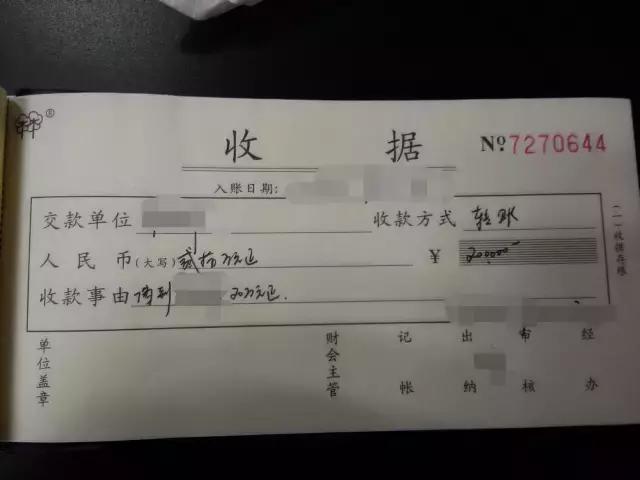 ®
收 据 Nº 7270644
入账日期:
交款单位 收款方式 转账
人民币(大写) 贰拾万元正 ¥ 200000
收款事由 借到 20万元正.
(一)收据存根
单位盖章 财会主管 记帐 出纳 审核 经办